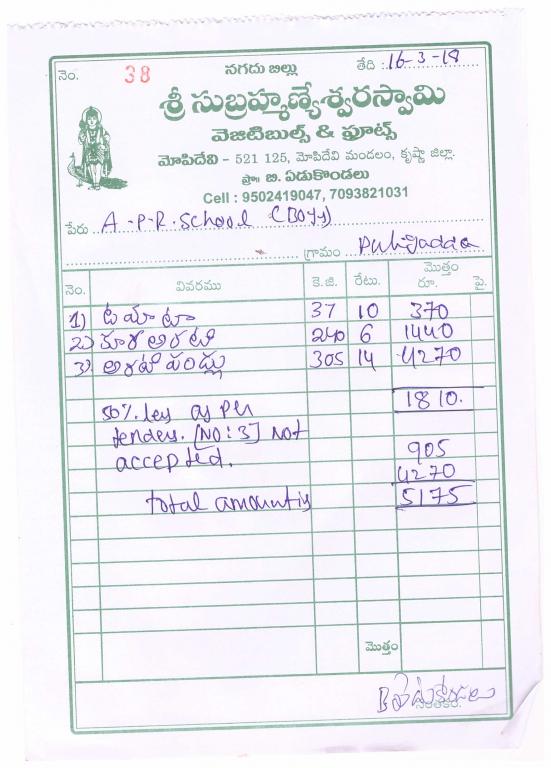 నెం. 38 నగదు బిల్లు తేది : 16-3-18
శ్రీ సుబ్రహ్మణ్యేశ్వరస్వామి
వెజిటిబుల్స్ & ఫ్రూట్స్
మోపిదేవి - 521 125, మోపిదేవి మండలం, కృష్ణా జిల్లా.
ప్రొ॥ బి. ఏడుకొండలు
Cell : 9502419047, 7093821031
పేరు A.P.R. School (Boys)
గ్రామం Puligadda
నెం. వివరము కె.జి. రేటు. మొత్తం రూ. పై.
1) టమాటా 37 10 370
2) కూర అరటి 240 6 1440
3) అరటి పండ్లు 305 14 4270
1810.
50% les as per
tender. [NO:3] not
accepted. 905
4270
total amount is 5175
మొత్తం
B ఏడుకొండలు
సంతకం.